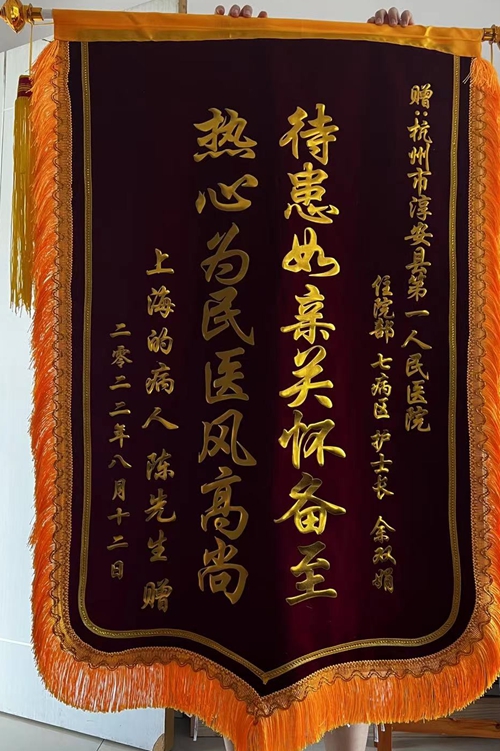 赠:杭州市淳安县第一人民医院
住院部 七病区 护士长 余双娟
待患如亲关怀备至
热心为民医风高尚
上海的病人 陈先生 赠
二零二二年八月十二日